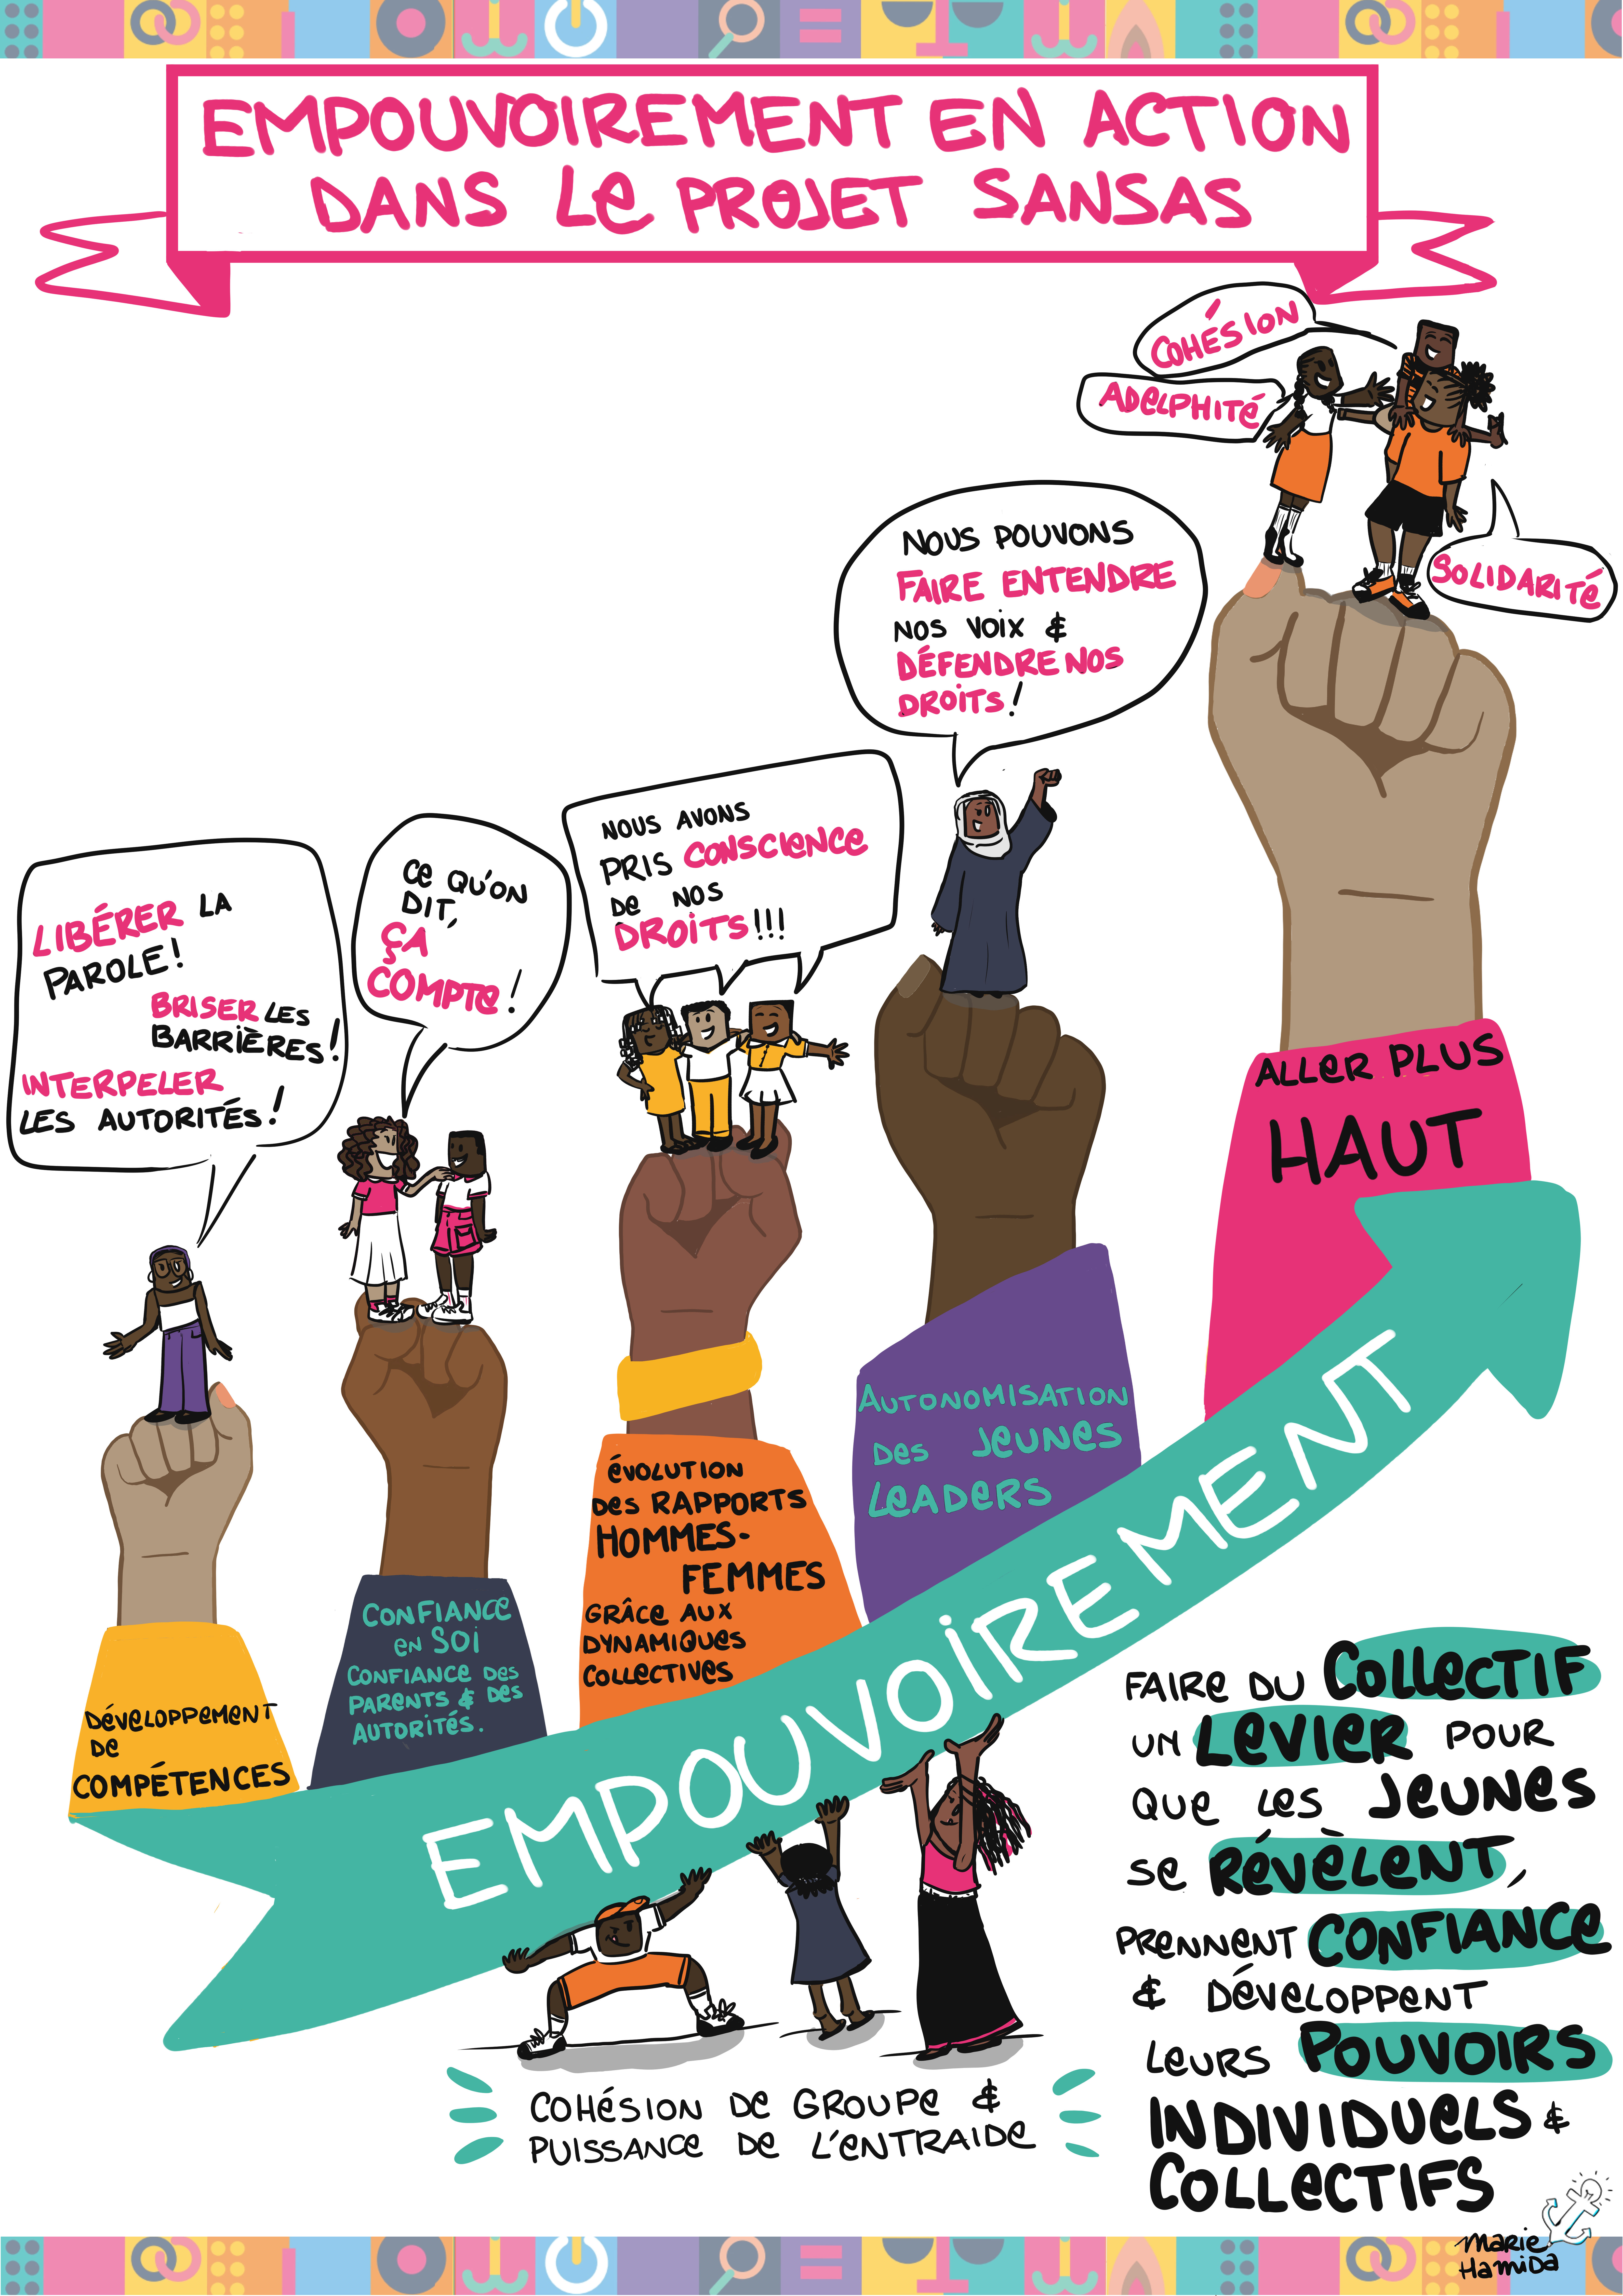 EMPOUVOIREMENT EN ACTION
DANS LE PROJET SANSAS
COHÉSION
ADELPHITÉ
SOLIDARITÉ
NOUS POUVONS
FAIRE ENTENDRE
NOS VOIX &
DÉFENDRE NOS
DROITS !
NOUS AVONS
PRIS CONSCIENCE
DE NOS
DROITS !!!
CE QU'ON
DIT,
ÇA
COMPTE !
LIBÉRER LA
PAROLE !
BRISER LES
BARRIÈRES !
INTERPELER
LES AUTORITÉS !
DÉVELOPPEMENT
DE
COMPÉTENCES
CONFIANCE
EN SOI
CONFIANCE DES
PARENTS & DES
AUTORITÉS.
ÉVOLUTION
DES RAPPORTS
HOMMES-
FEMMES
GRÂCE AUX
DYNAMIQUES
COLLECTIVES
AUTONOMISATION
DES JEUNES
LEADERS
ALLER PLUS
HAUT
EMPOUVOIREMENT
COHÉSION DE GROUPE &
PUISSANCE DE L'ENTRAIDE
FAIRE DU COLLECTIF
UN LEVIER POUR
QUE LES JEUNES
SE RÉVÈLENT,
PRENNENT CONFIANCE
& DÉVELOPPENT
LEURS POUVOIRS
INDIVIDUELS &
COLLECTIFS
MARIE
HAMIDA